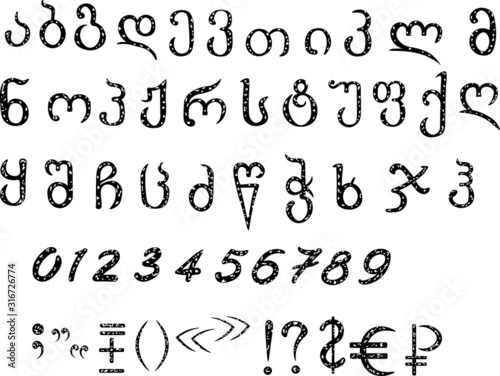 ა ბ გ დ ე ვ ზ თ ი კ ლ მ
ნ ო პ ჟ რ ს ტ უ ფ ქ ღ
ყ შ ჩ ც ძ წ ჭ ხ ჯ ჰ
0 1 2 3 4 5 6 7 8 9
( ) « » ! ? $ € ₽
Adobe Stock | #316726774